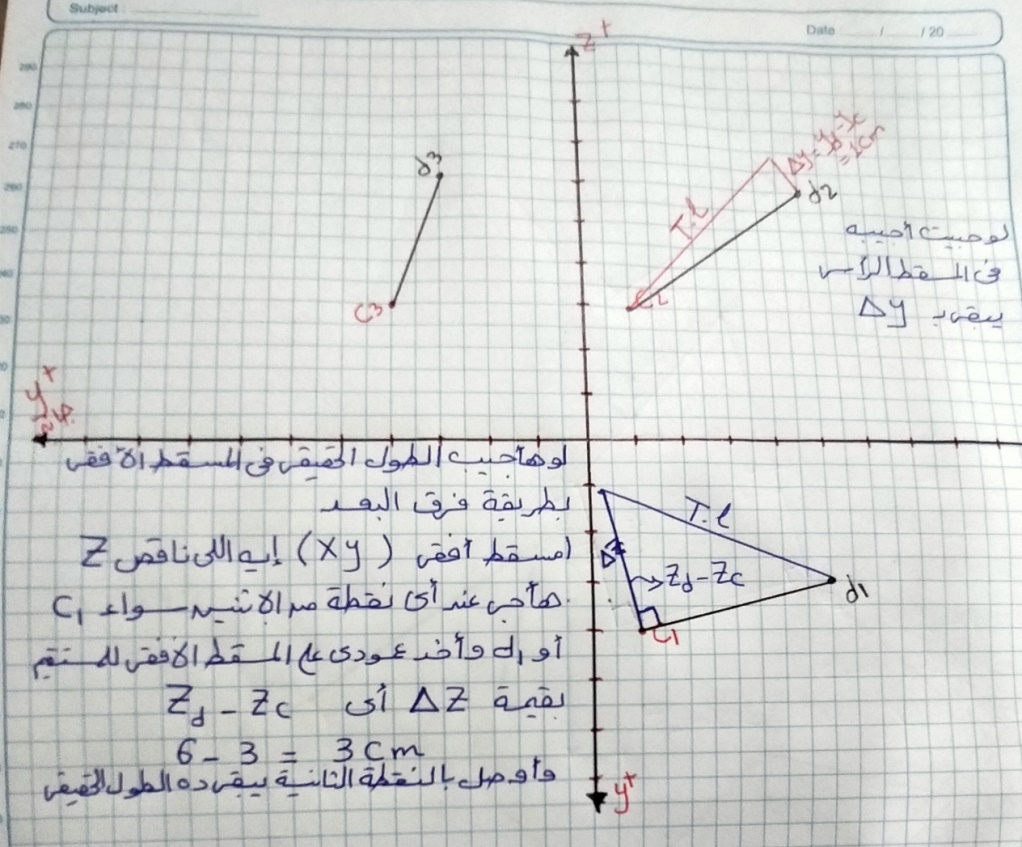 Subject
Date / / 20
290
280
270
260
Z+
d3
C3
T.l
Δy = yd - yc
= 1cm
d2
C2
لو حبيت أجيبه
فى المسقط الرأسى
يبقى بـ Δy
y+
لو هأجيب الطول الحقيقى فى المسقط الأفقى
بطريقة فرق البعد
(مسقط أفقى (xy) إيه اللى ناقص Z
هأجى عند أى نقطة من الاتنين سواء C1
أو d1 وأخد عمودى على المسقط الأفقى للمستقيم
بقيمة ΔZ أى Zd - Zc
6 - 3 = 3 cm
وأوصل بالنقطة التانية يبقى ده الطول الحقيقى
T.l
Zd - Zc
d1
C1
y+